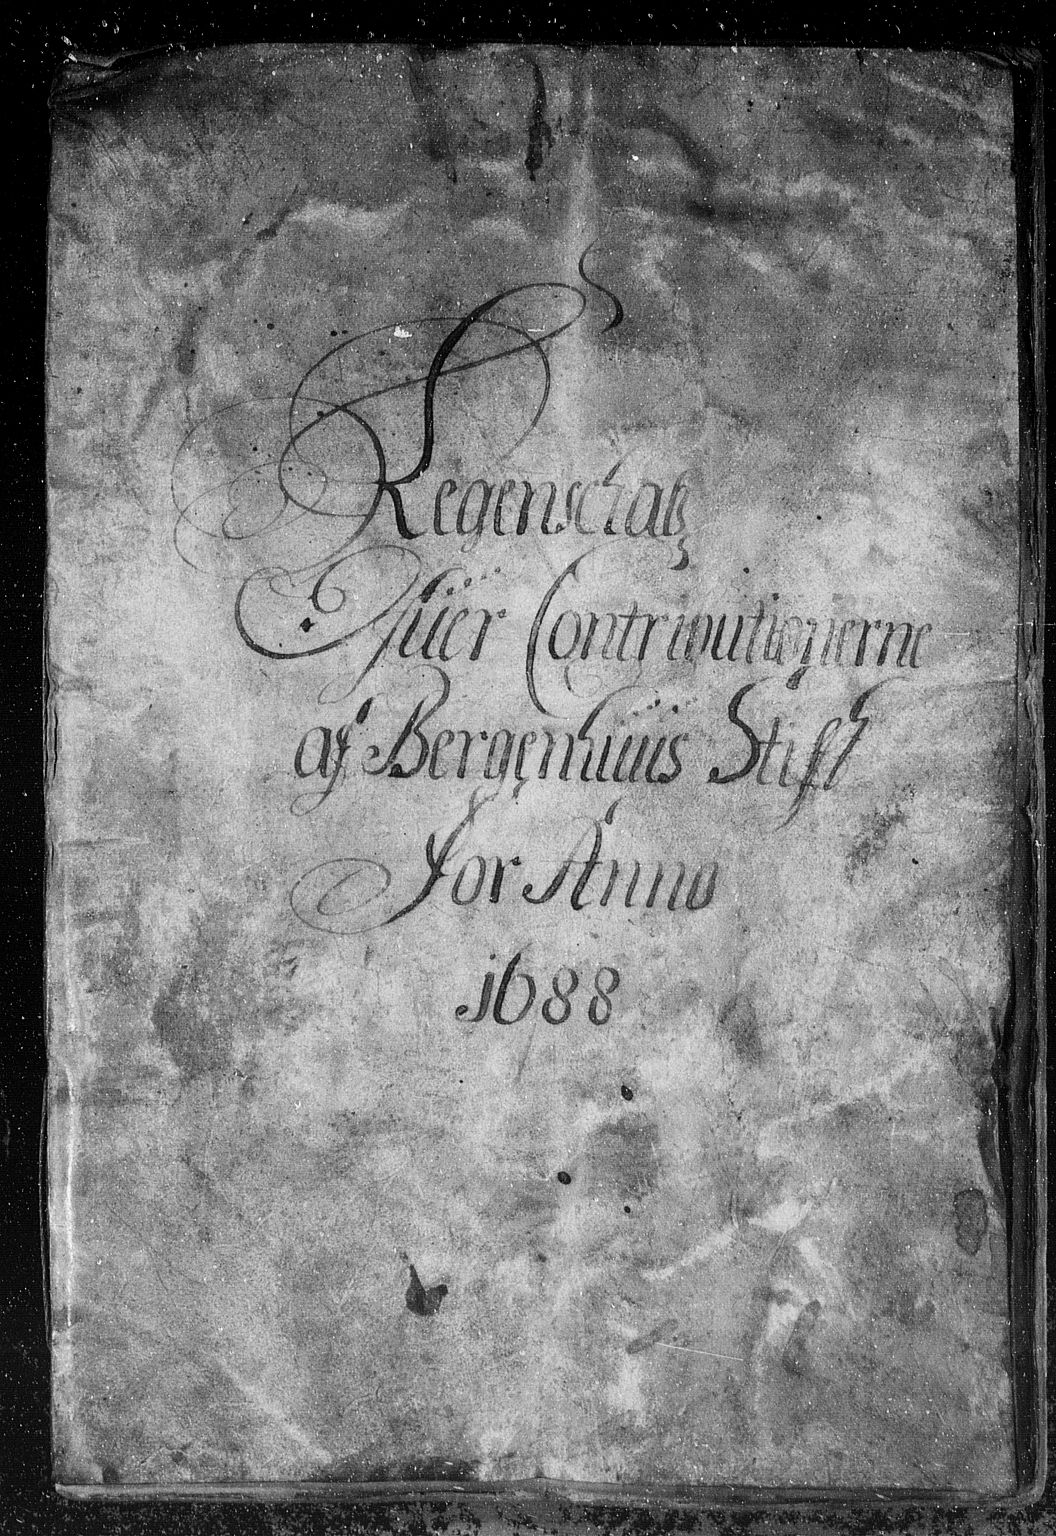 Regenschab
Offuer Contributionerne
af Bergenhuus Stift
for Anno
1688